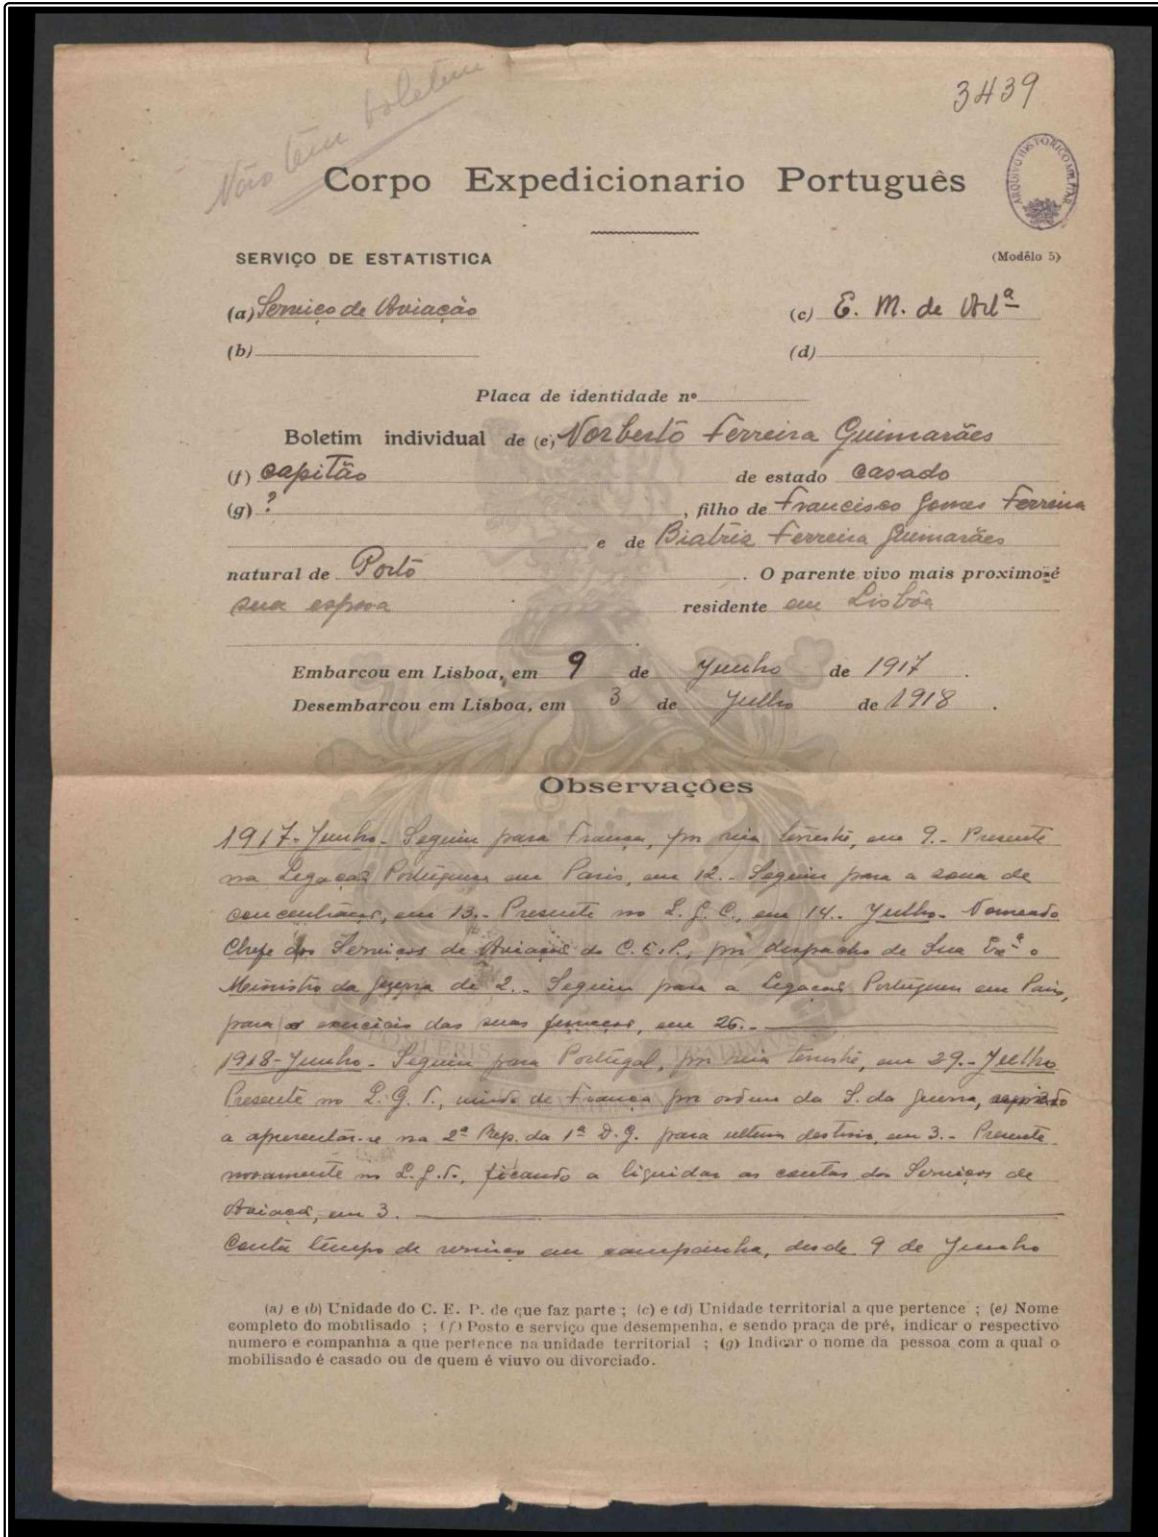 Não têm boletim
3439
Corpo Expedicionario Português
ARQUIVO HISTORICO MILITAR
SERVIÇO DE ESTATISTICA
(Modêlo 5)
(a) Serviço de Aviação
(c) E. M. de Artª
(b)
(d)
Placa de identidade nº
Boletim individual de (e) Norberto Ferreira Guimarães
(f) capitão de estado casado
(g) ? , filho de Francisco Gomes Ferreira
e de Biatriz Ferreira Guimarães
natural de Porto . O parente vivo mais proximo é
sua esposa residente em Lisbôa
Embarcou em Lisboa, em 9 de Junho de 1917 .
Desembarcou em Lisboa, em 3 de Julho de 1918 .
Observações
1917-Junho- Seguiu para França, por via terrestre, em 9.- Presente
na Legação Portuguesa em Paris, em 12.- Seguiu para a zona de
concentração, em 13.- Presente no Q. G. C., em 14.- Julho- Nomeado
Chefe dos Serviços de Aviação do C. E. P., por despacho de Sua Exª o
Ministro da Guerra de 2.- Seguiu para a Legação Portuguesa em Paris,
para o exercicio das suas funções, em 26.-
1918-Junho- Seguiu para Portugal, por via terrestre, em 29.- Julho
Presente no Q. G. T., vindo de França por ordem da S. da Guerra,
a apresentar-se na 2ª Rep. da 1ª D. G. para ulterior destino, em 3.- Presente
novamente no Q. G. T., ficando a liquidar as contas dos Serviços de
Aviação, em 3.
Conta tempo de serviço em campanha, desde 9 de Junho
(a) e (b) Unidade do C. E. P. de que faz parte ; (c) e (d) Unidade territorial a que pertence ; (e) Nome
completo do mobilisado ; (f) Posto e serviço que desempenha, e sendo praça de pré, indicar o respectivo
numero e companhia a que pertence na unidade territorial ; (g) Indicar o nome da pessoa com a qual o
mobilisado é casado ou de quem é viuvo ou divorciado.